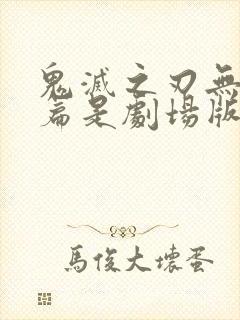 鬼滅之刃無
篇是劇場版
馬俊大壞蛋